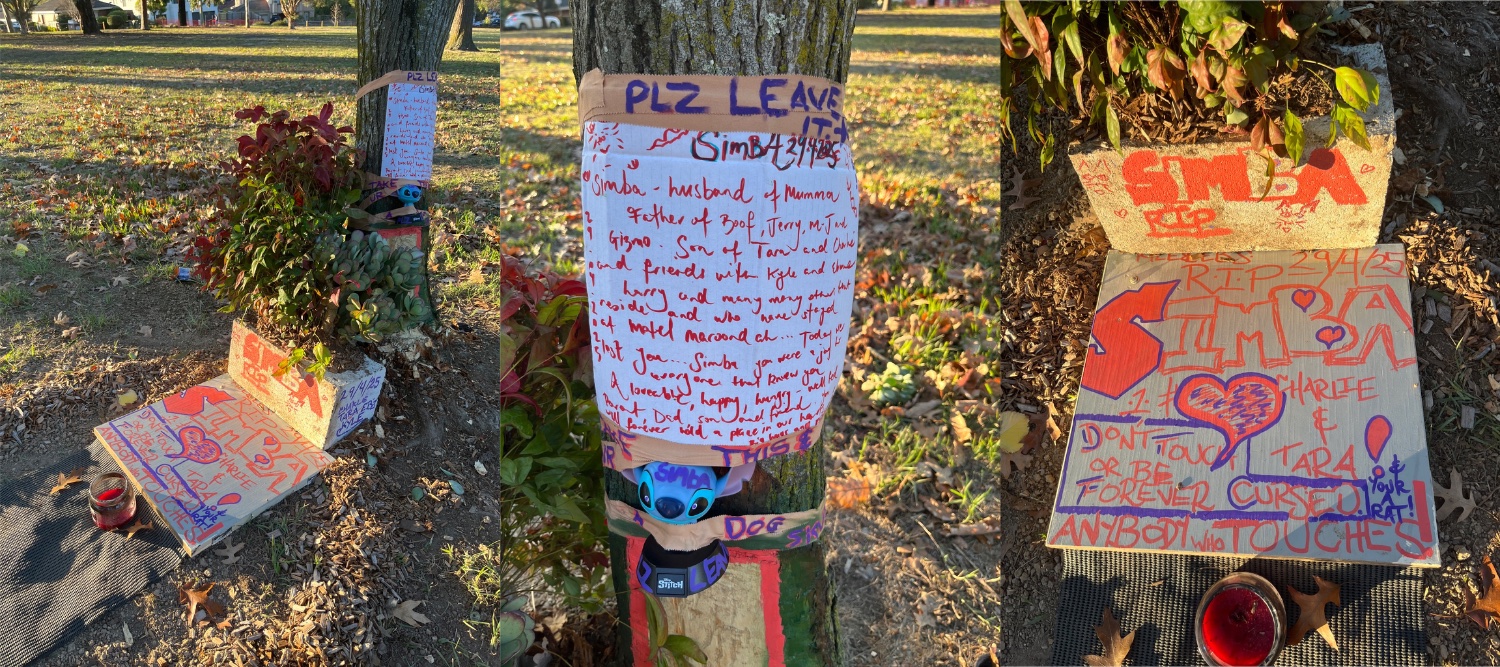 PLZ LE
Simba
TAKE
SIMBA
RIP
29/4/25
CHARLIE
TARA
KYLE
PLZ LEAVE
IT
SIMBA 29/4/25
Simba - husband of Mumma
Father of Boof, Jerry, M.J and
Gizmo - Son of Tara and Charlie
and friends with Kyle and
harry and many many other that
reside and who have stayed
at Motel maroondah... Today we
lost you... Simba you were a joy to
everyone that knew you
A loveable, happy, hungry, well
Parent, Dad, son and friend
will forever hold a place in our
THIS &
SIMBA
A DOG
LEA
STITCH
SIMBA
RIP
29/4/25
R.I.P
SIMBA
CHARLIE
&
TARA
DONT TOUCH
OR BE
FOREVER CURSED!
& YOUR RAT!
ANYBODY who TOUCHES!